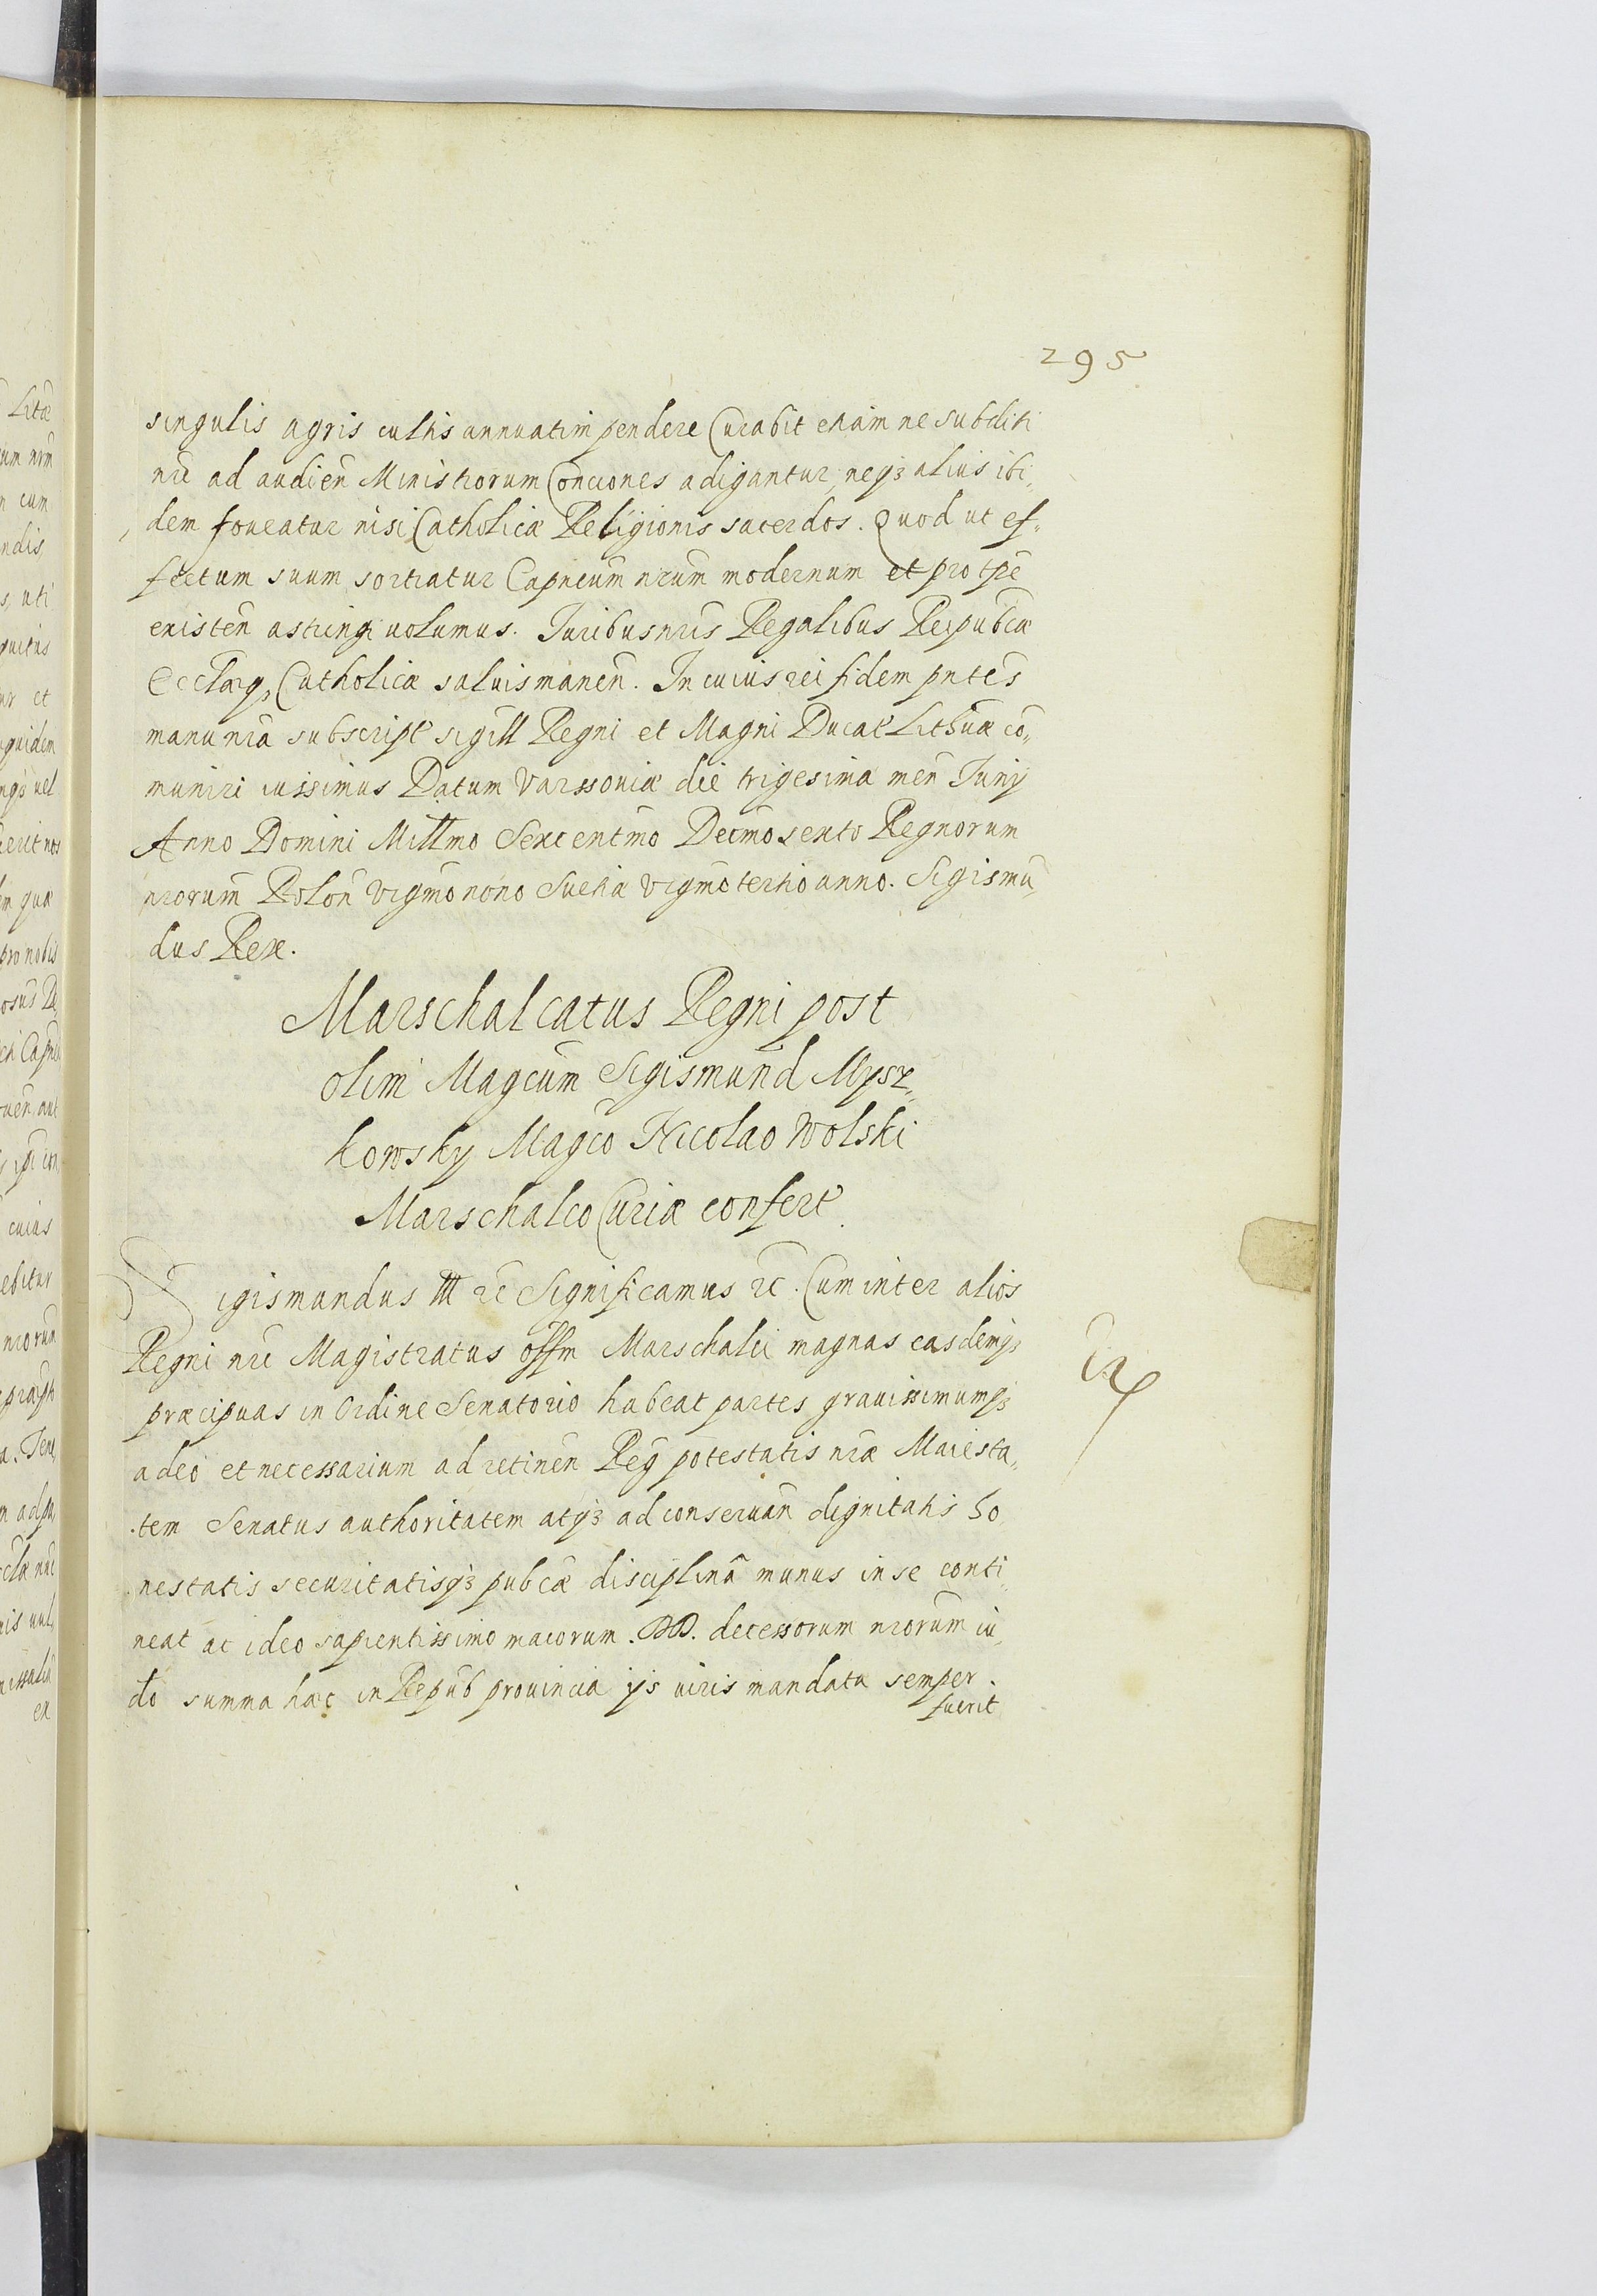 295
singulis agris cultis annuatim pendere Curabit etiam ne subditi
nri ad audien̄ Ministrorum Conciones adigantur, neqꝫ alius ibi„
dem foveatur nisi Catholicæ Religionis sacerdos. Quod ut ef„
fectum suum sortiatur Capneum nrum modernum et pro tpe
existen̄ astringi volumus. Juribus nris Regalibus Reipubcæ
Ecclæqꝫ Catholicæ salvis manen̄. In cuius rei fidem pntes
manu nra subscript sigill Regni et Magni Ducat Lithuæ co„
muniri iussimus Datum Varssoviæ die trigesima men̄ Junij
Anno Domini Millmo Sexcentmo Decmosexto Regnorum
nrorum Polon̄ vigmonono Suetiæ vigmotertio anno. Sigismu„
dus Rex.
Marschalcatus Regni post
olim Magcum Sigismund Mysz„
kowsky Magco Nicolao Wolski
Marschalco Curiæ confert
Sigismundus III ꝛc Significamus ꝛc. Cum inter alios
Regni nri Magistratus offm Marschalci magnas easdemqꝫ
præcipuas in Ordine Senatorio habeat partes gravissimumqꝫ
adeo et necessarium ad retinen̄ Reg potestatis nræ Maiesta„
tem Senatus authoritatem atqꝫ ad conservan̄ dignitatis ho
nestatis securitatisqꝫ pubcæ disciplinâ munus in se conti„
neat ac ideo sapientissimo maiorum. DD. decessorum nrorum iu„
do summa hæc in Repub provincia ijs viris mandata semper
fuerit